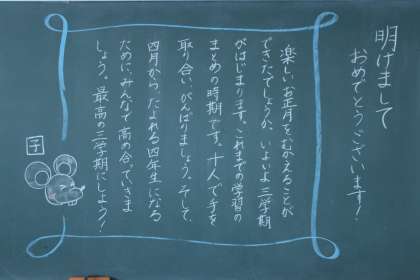 明けまして
おめでとうございます!
楽しいお正月をむかえることが
できたでしょうか。いよいよ三学期
がはじまります。これまでの学習の
まとめの時期です。十人で手を
取り合い、がんばりましょう。そして、
四月から、たよれる四年生になる
ために、みんなで高め合っていきま
しょう。最高の三学期にしよう!
子